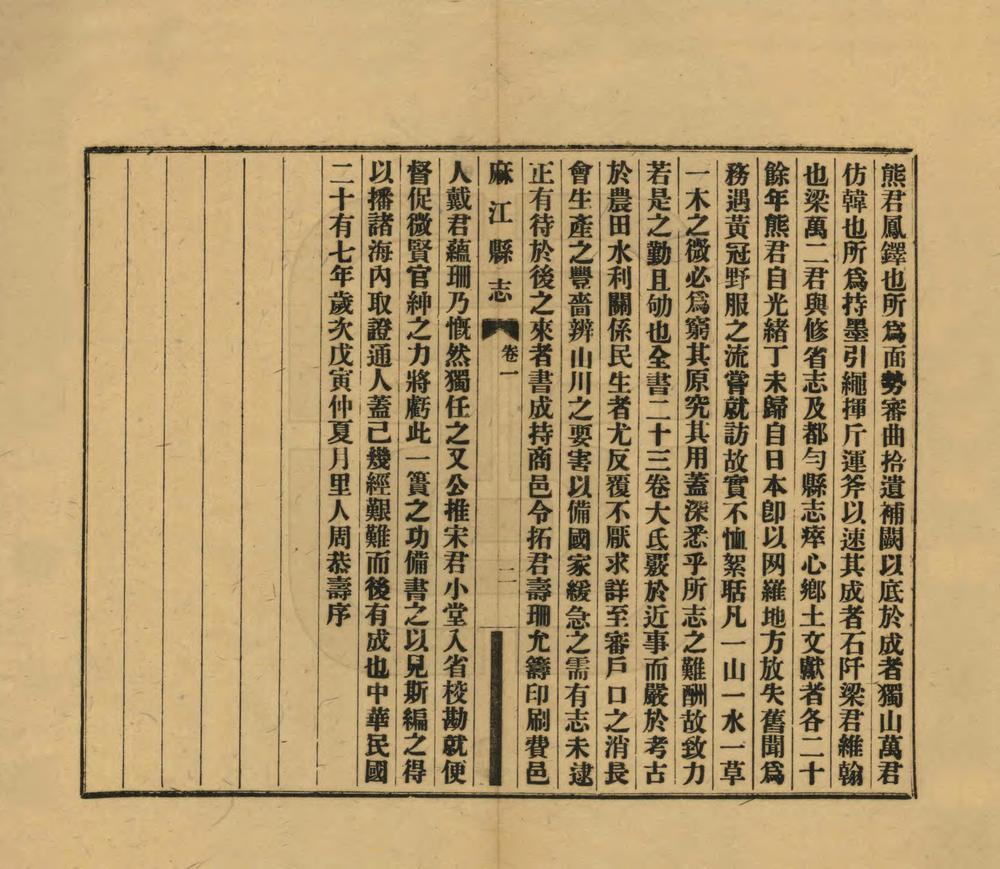 熊君鳳鐸也所爲面勢審曲拾遺補闕以底於成者獨山萬君
仿韓也所爲持墨引繩揮斤運斧以速其成者石阡梁君維翰
也梁萬二君與修省志及都勻縣志瘁心鄕土文獻者各二十
餘年熊君自光緒丁未歸自日本卽以网羅地方放失舊聞爲
務遇黃冠野服之流嘗就訪故實不恤絮聒凡一山一水一草
一木之微必爲窮其原究其用蓋深悉乎所志之難酬故致力
若是之勤且劬也全書二十三卷大氐覈於近事而嚴於考古
於農田水利關係民生者尤反覆不厭求詳至審戶口之消長
會生產之豐嗇辨山川之要害以備國家緩急之需有志未逮
正有待於後之來者書成持商邑令拓君壽珊允籌印刷費邑
麻江縣志 卷一 二
人戴君蘊珊乃慨然獨任之又公推宋君小堂入省校勘就便
督促微賢官紳之力將虧此一簣之功備書之以見斯編之得
以播諸海內取證通人蓋已幾經艱難而後有成也中華民國
二十有七年歲次戊寅仲夏月里人周恭壽序